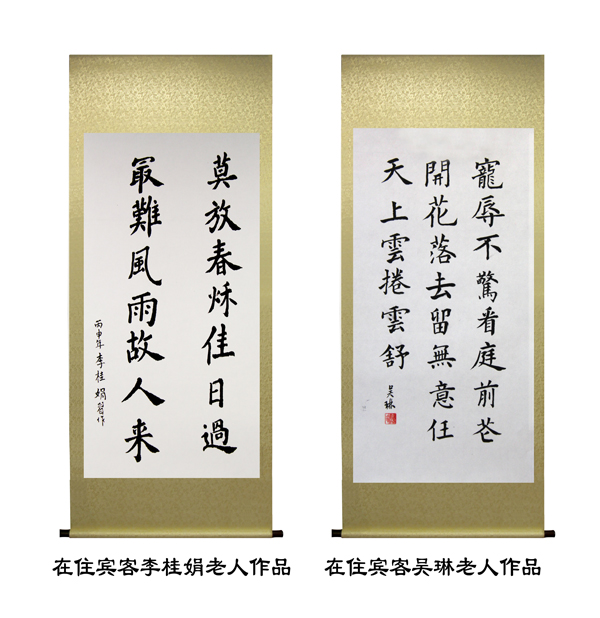 莫放春秋佳日過
最難風雨故人来
丙申年李桂娟習作
寵辱不驚看庭前芲
開花落去留無意任
天上雲捲雲舒
吴琳
在住宾客李桂娟老人作品
在住宾客吴琳老人作品